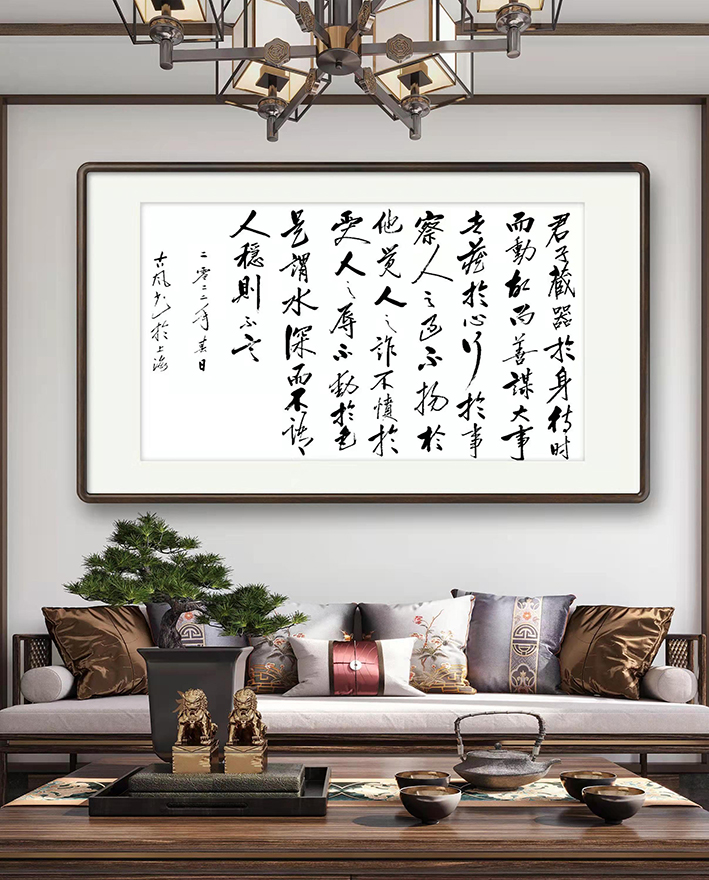 君子藏器於身待时
而動故而善謀大事
者藏於心行於事
察人之过不扬於
他覚人之詐不憤於
受人之辱不動於色
是謂水深而不語
人穩則不言
二零二二年春日
古风书於上海